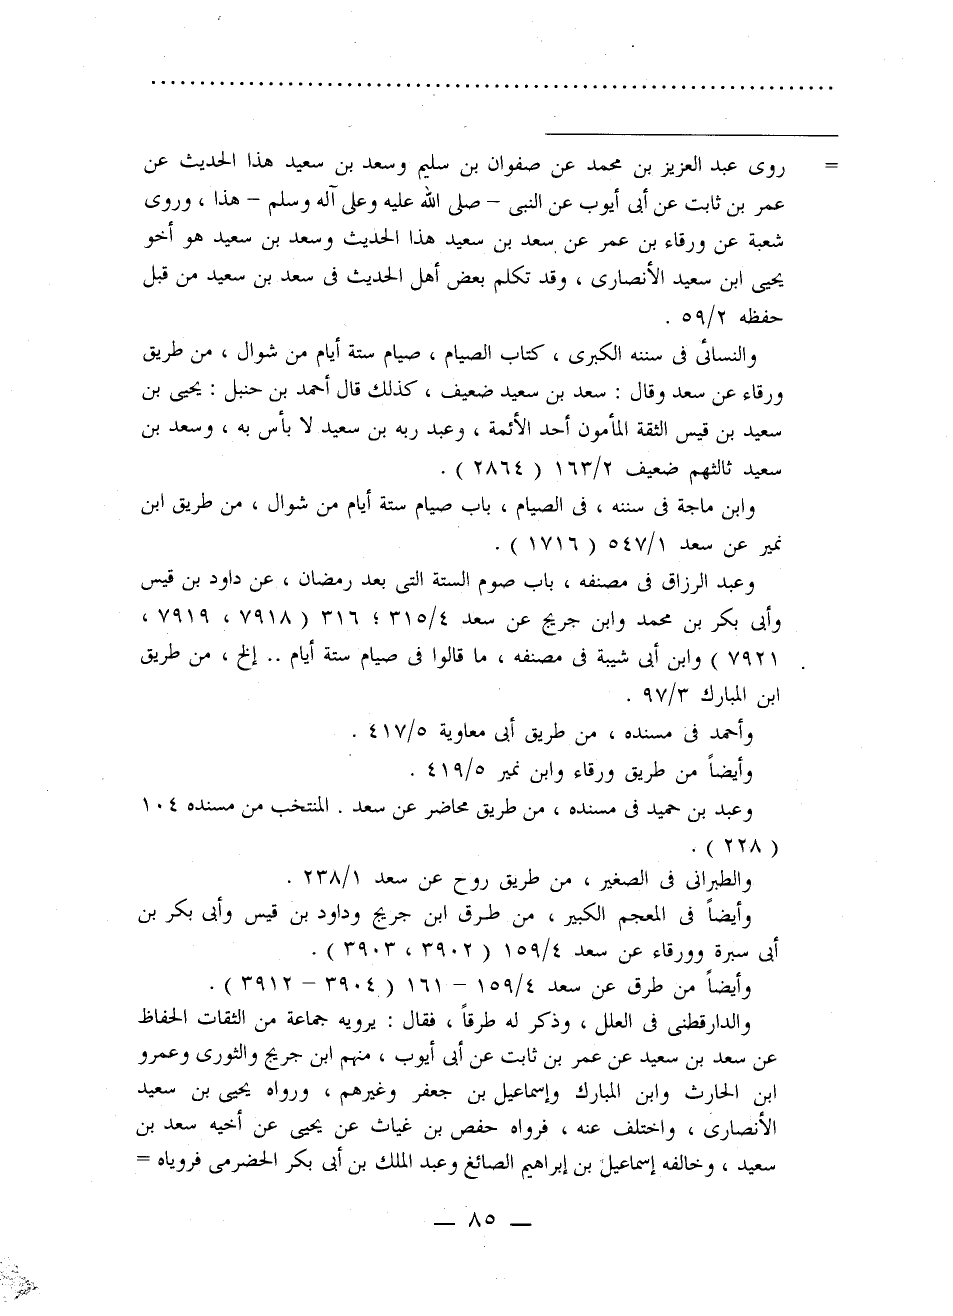 = روى عبد العزيز بن محمد عن صفوان بن سليم وسعد بن سعيد هذا الحديث عن
عمر بن ثابت عن أبى أيوب عن النبى – صلى الله عليه وعلى آله وسلم – هذا ، وروى
شعبة عن ورقاء بن عمر عن سعد بن سعيد هذا الحديث وسعد بن سعيد هو أخو
يحيى ابن سعيد الأنصارى ، وقد تكلم بعض أهل الحديث فى سعد بن سعيد من قبل
حفظه ٥٩/٢ .
والنسائى فى سننه الكبرى ، كتاب الصيام ، صيام ستة أيام من شوال ، من طريق
ورقاء عن سعد وقال : سعد بن سعيد ضعيف ، كذلك قال أحمد بن حنبل : يحيى بن
سعيد بن قيس الثقة المأمون أحد الأئمة ، وعبد ربه بن سعيد لا بأس به ، وسعد بن
سعيد ثالثهم ضعيف ١٦٣/٢ ( ٢٨٦٤ ) .
وابن ماجة فى سننه ، فى الصيام ، باب صيام ستة أيام من شوال ، من طريق ابن
نمير عن سعد ٥٤٧/١ ( ١٧١٦ ) .
وعبد الرزاق فى مصنفه ، باب صوم الستة التى بعد رمضان ، عن داود بن قيس
وأبى بكر بن محمد وابن جريج عن سعد ٣١٥/٤ ؛ ٣١٦ ( ٧٩١٨ ، ٧٩١٩ ،
٧٩٢١ ) وابن أبى شيبة فى مصنفه ، ما قالوا فى صيام ستة أيام .. إلخ ، من طريق
ابن المبارك ٩٧/٣ .
وأحمد فى مسنده ، من طريق أبى معاوية ٤١٧/٥ .
وأيضاً من طريق ورقاء وابن نمير ٤١٩/٥ .
وعبد بن حميد فى مسنده ، من طريق محاضر عن سعد . المنتخب من مسنده ١٠٤
( ٢٢٨ ) .
والطبرانى فى الصغير ، من طريق روح عن سعد ٢٣٨/١ .
وأيضاً فى المعجم الكبير ، من طرق ابن جريج وداود بن قيس وأبى بكر بن
أبى سبرة وورقاء عن سعد ١٥٩/٤ ( ٣٩٠٢ ، ٣٩٠٣ ) .
وأيضاً من طرق عن سعد ١٥٩/٤ – ١٦١ ( ٣٩٠٤ – ٣٩١٢ ) .
والدارقطنى فى العلل ، وذكر له طرقاً ، فقال : يرويه جماعة من الثقات الحفاظ
عن سعد بن سعيد عن عمر بن ثابت عن أبى أيوب ، منهم ابن جريج والثورى وعمرو
ابن الحارث وابن المبارك وإسماعيل بن جعفر وغيرهم ، ورواه يحيى بن سعيد
الأنصارى ، واختلف عنه ، فرواه حفص بن غياث عن يحيى عن أخيه سعد بن
سعيد ، وخالفه إسماعيل بن إبراهيم الصائغ وعبد الملك بن أبى بكر الحضرمى فروياه =
— ٨٥ —